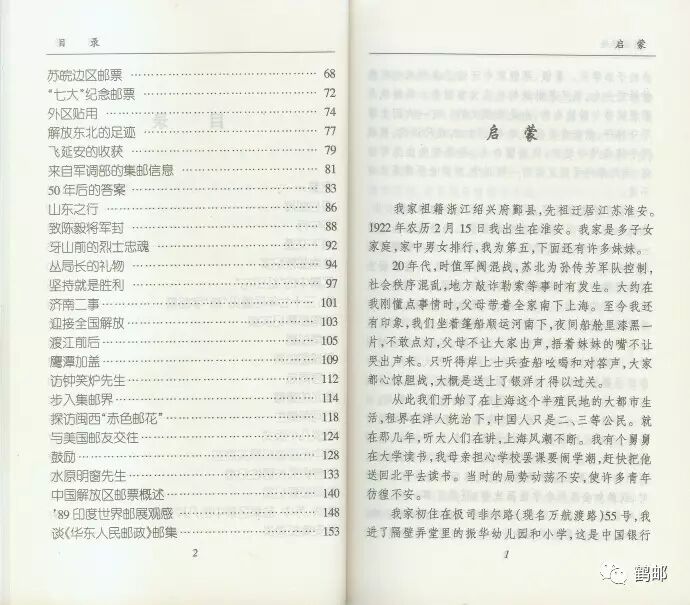 目 录
苏皖边区邮票 68
“七大”纪念邮票 72
外区贴用 74
解放东北的足迹 77
飞延安的收获 79
来自军调部的集邮信息 81
50年后的答案 83
山东之行 86
致陈毅将军封 88
牙山前的烈士忠魂 92
丛局长的礼物 94
坚持就是胜利 97
济南二事 101
迎接全国解放 103
渡江前后 105
鹰潭加盖 109
访钟笑炉先生 112
步入集邮界 114
探访闽西“赤色邮花” 118
与美国邮友交往 124
鼓励 128
水原明窗先生 133
中国解放区邮票概述 140
’89印度世界邮展观感 148
谈《华东人民邮政》邮集 153
2
启 蒙
启 蒙
我家祖籍浙江绍兴府鄞县,先祖迁居江苏淮安。
1922年农历2月15日我出生在淮安。我家是多子女
家庭,家中男女排行,我为第五,下面还有许多妹妹。
20年代,时值军阀混战,苏北为孙传芳军队控制,
社会秩序混乱,地方敲诈勒索等事时有发生。大约在
我刚懂点事情时,父母带着全家南下上海。至今我还
有印象,我们坐着篷船顺运河南下,夜间船舱里漆黑一
片,不敢点灯,父母不让大家出声,捂着妹妹的嘴不让
哭出声来。只听得岸上士兵查船吆喝和对答声,大家
都心惊胆战,大概是送上了银洋才得以过关。
从此我们开始了在上海这个半殖民地的大都市生
活,租界在洋人统治下,中国人只是二、三等公民。就
在那几年,听大人们在讲,上海风潮不断。我有个舅舅
在大学读书,我母亲担心学校罢课要闹学潮,赶快把他
送回北平去读书。当时的局势动荡不安,使许多青年
彷徨不安。
我家初住在极司非尔路(现名万航渡路)55号,我
进了隔壁弄堂里的振华幼儿园和小学,这是中国银行
1
鹤邮